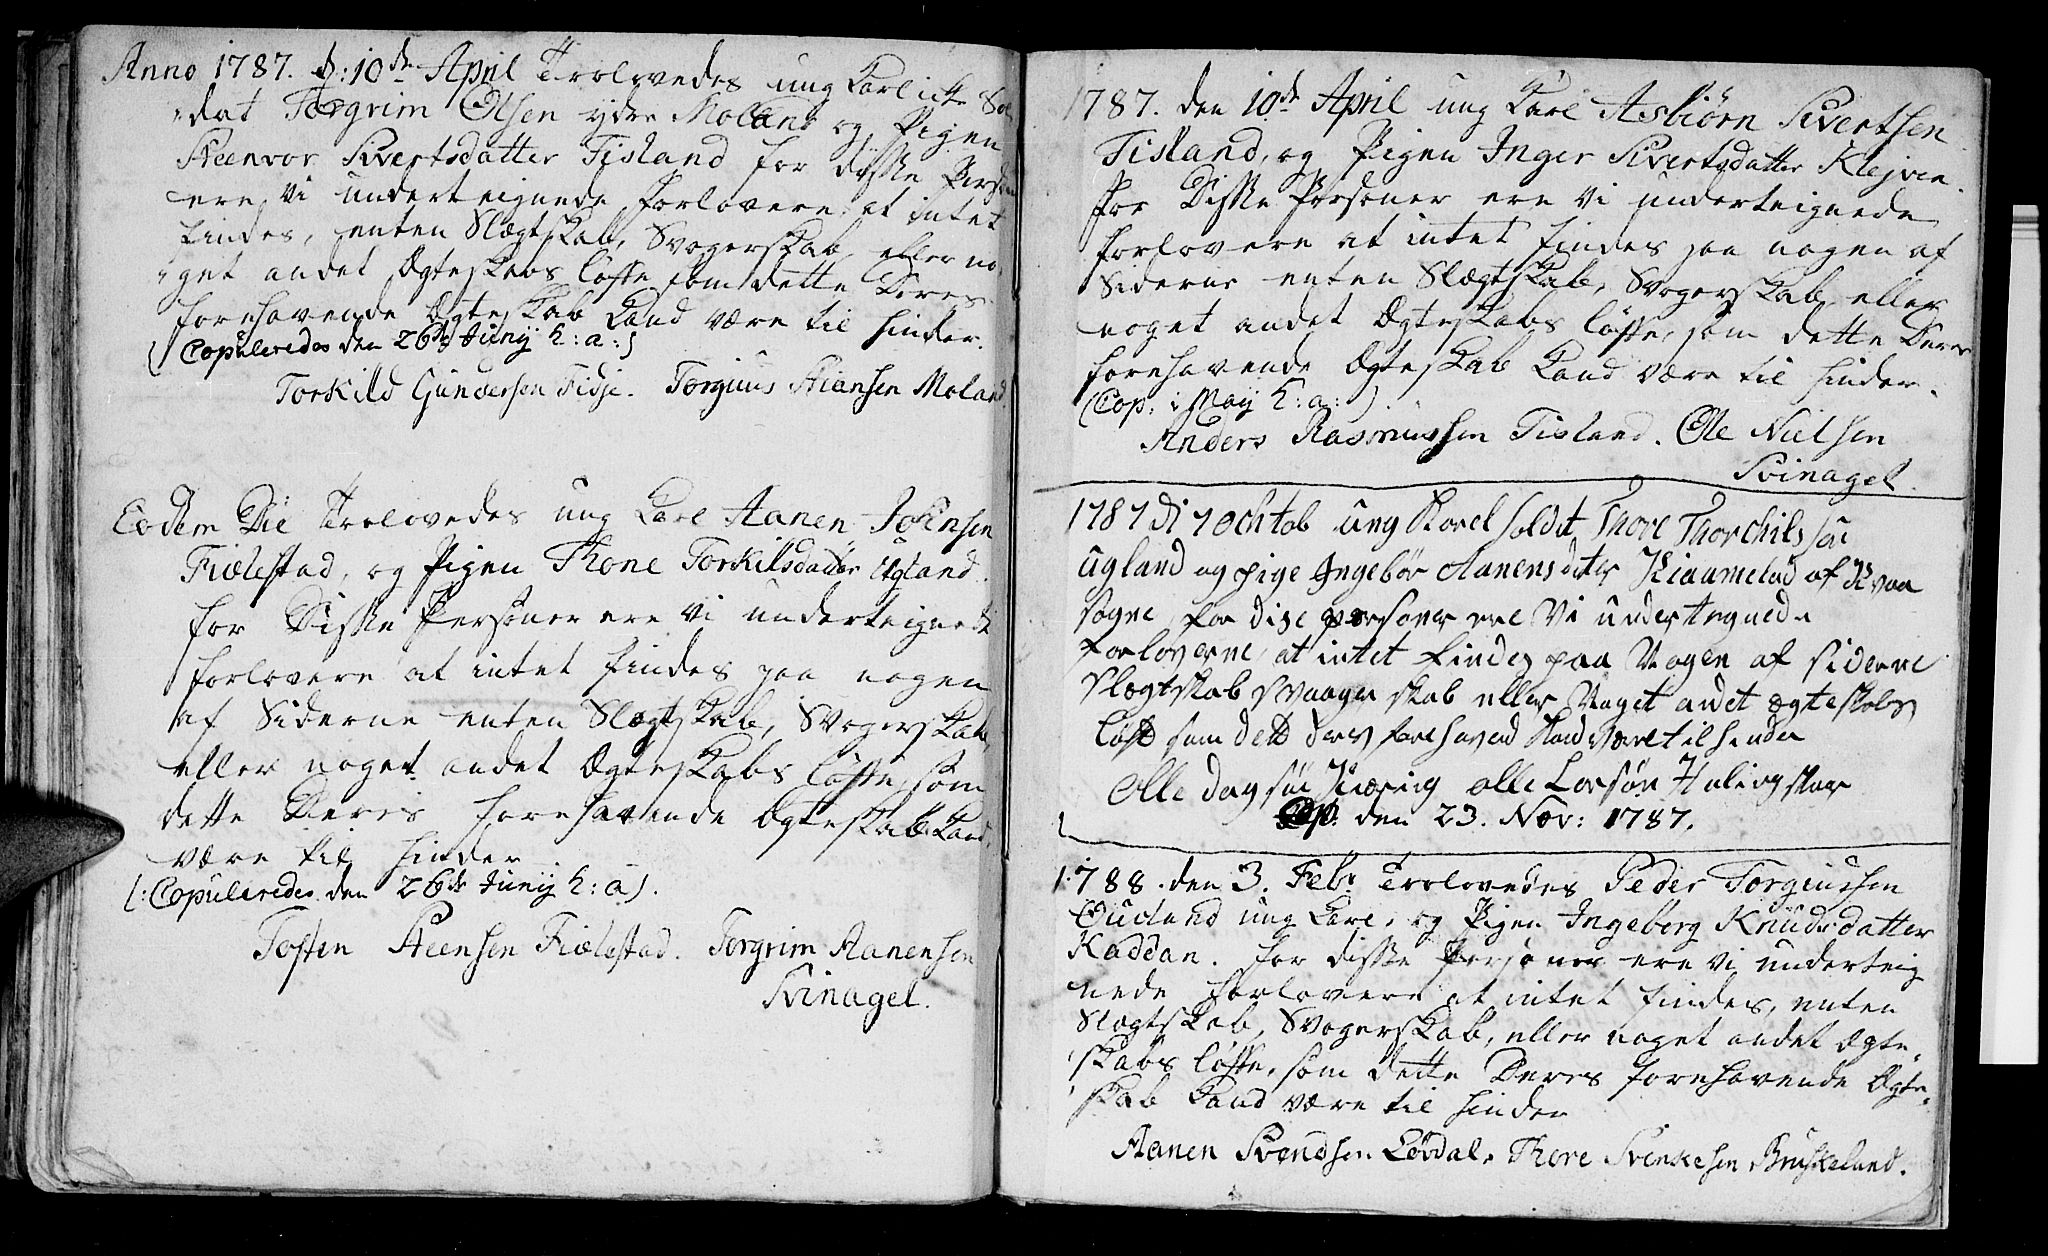 Anno 1787. d: 10de April Trolovedes ung Karl ick Sol
dat Torgrim Olsen ydre Moland og Pigen
Steenvor Sivertsdatter Tisland for disse Perso
ere vi underteignede Forlovere, at intet
findes, enten Slægtskab, Svogerskab eller no
get andet Ægteskabs løfte som dette Deres
forehavende Ægteskab kand være til hinder.
(Copuleredes den 26de Junij h: a:)
Torkild Gundersen Fidje. Torgiuus Stiansen Moland
Eodem Die Trolovedes ung Karl Aanen Johnsen
Fiælestad, og Pigen Thone Torkilsdatter Ugland.
for Disse Personer ere vi underteignede
forlovere at intet findes paa nogen
af Siderne enten Slægtskab, Svogerskab
eller noget andet Ægteskabs løfte, som
dette Deres forehavende Ægteskab kand
være til hinder
(:Copuleredes den 26de Junij h: a).
Tosten Steensen Fiælestad. Torgrim Aanensen
Svinagel.
1787. den 10de April ung Karl Asbiørn Sivertsen
Tisland, og Pigen Inger Sivertsdatter Klejven.
for Disse Personer ere vi underteignede
forlovere at intet findes paa nogen af
Siderne enten Slægtskab, Svogerskab eller
noget andet Ægteskabs løfte, som dette Deres
forehavende Ægteskab kand være til hinder.
(Cop: i Maij h: a:).
Anders Rasmussen Tisland. Ole Nielsen
Svinagel.
1787 di 7 ochtob ung Karel soldat Thore Thorchils søn
ugland og pige Ingebør Aanens dater Kiaamelad af Evaa
sogne, for dise personer ere Vi undertegnede
forloverne, at intet findes paa Nogen af siderne
slegtskab svaager skab eller Noget andet ægteskabs
løfte som dette deres forehavend Kand være til hender
Olle dag søn Kiæring olle Larsøn Halingskar
Cop. den 23. Nov: 1787.
1788. den 3. Febr Trolovedes Peder Torgiussen
Ouvland ung Karl, og Pigen Ingeborg Knudsdatter
Kaddan. for disse Personer ere vi underteig
nede forlovere at intet findes, enten
Slægtskab, Svogerskab, eller noget andet Ægte,
skabs løfte, som dette Deres forehavende Ægte,
skab kand være til hinder
Aanen Svendsen Løvdal, Thore Svenkesen Bruskeland.